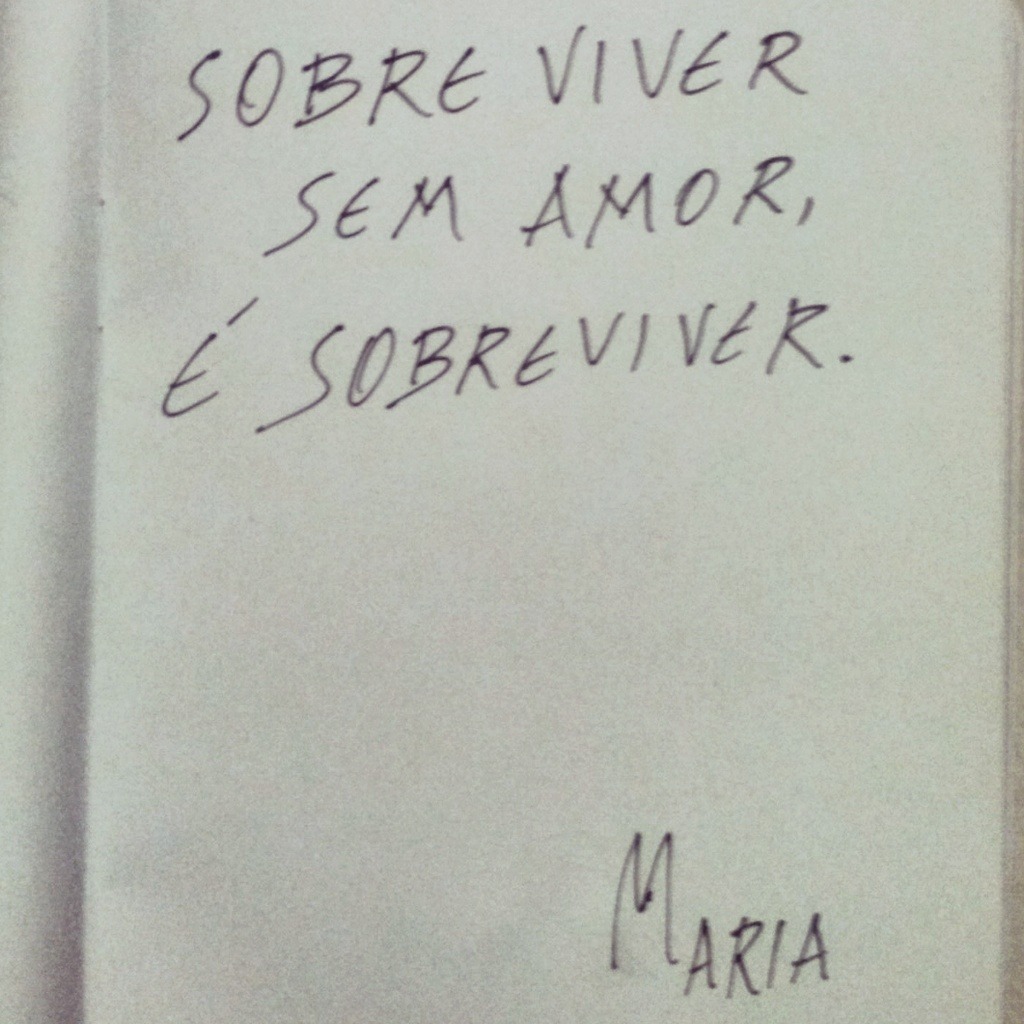 SOBRE VIVER
SEM AMOR,
É SOBREVIVER.
MARIA